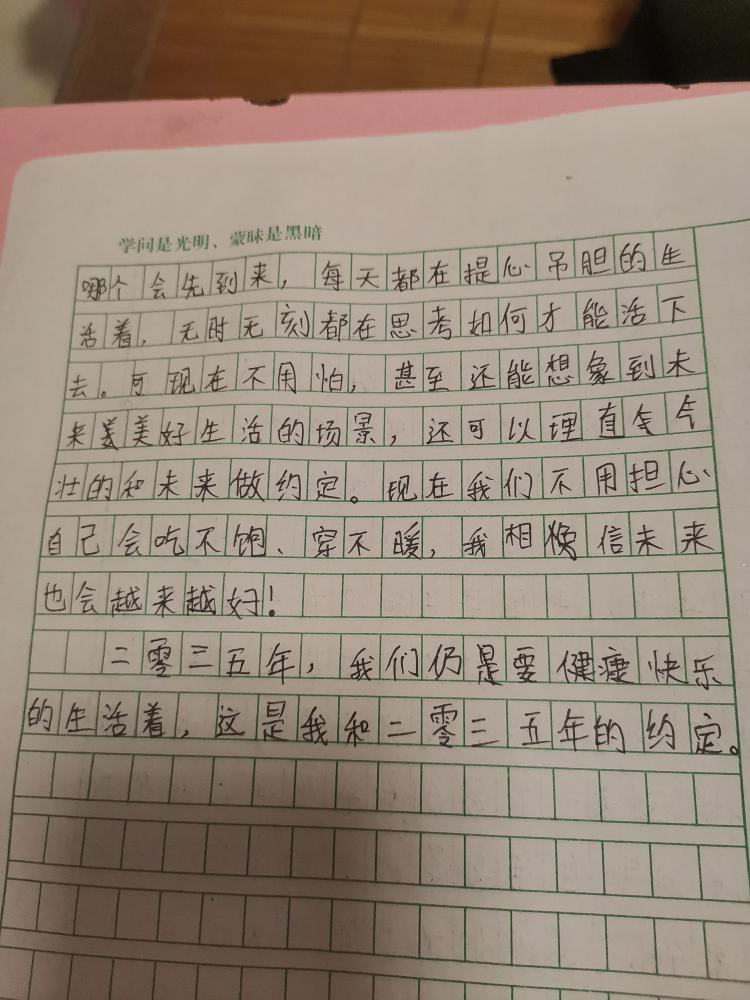 学问是光明、蒙昧是黑暗
哪个会先到来，每天都在提心吊胆的生
活着，无时无刻都在思考如何才能活下
去。可现在不用怕，甚至还能想象到未
来美美好生活的场景，还可以理直气
壮的和未来做约定。现在我们不用担心
自己会吃不饱、穿不暖，我相信未来
也会越来越好！
二零三五年，我们仍是要健康快乐
的生活着，这是我和二零三五年的约定。